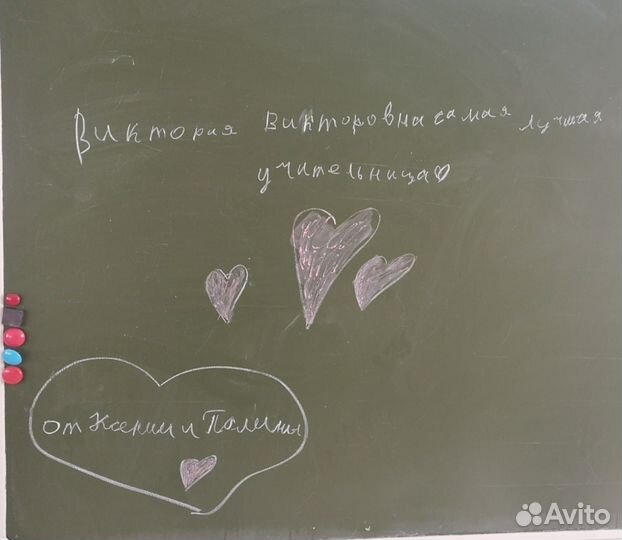 Виктория Викторовна самая лучшая
учительница♡
от Ксении и Полины
Avito